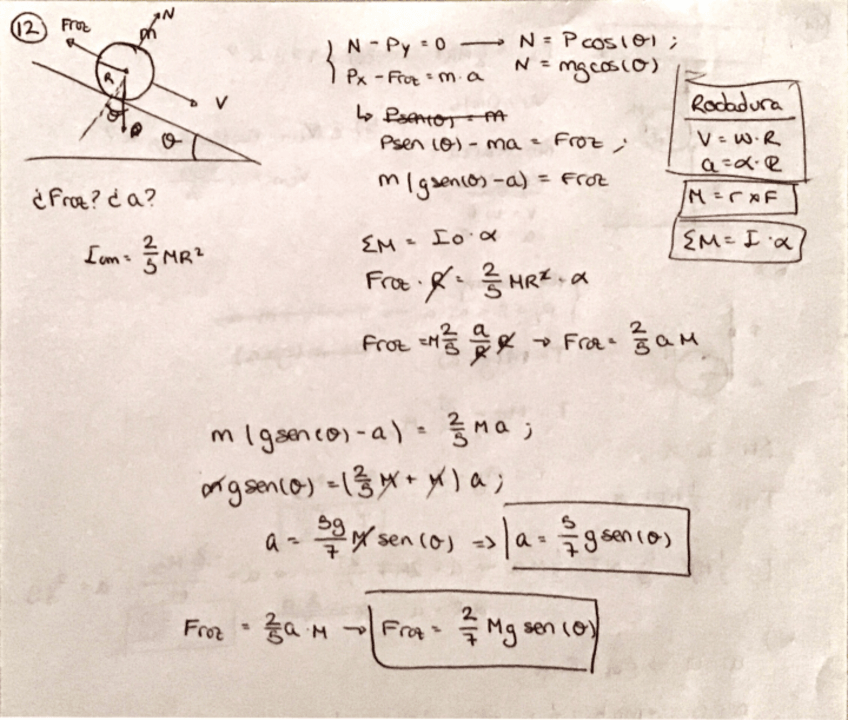 12
Froz
N
m
R
θ
P
V
θ
¿Froz? ¿a?
Icm = 2/5 MR²
{ N - Py = 0 → N = Pcos(θ) ;
{ Px - Froz = m·a N = mgcos(θ)
↳ Psen(θ) = m
Psen(θ) - ma = Froz ;
m(gsen(θ) - a) = Froz
Rodadura
V = ω·R
a = α·R
M = r × F
ΣM = I·α
ΣM = Io·α
Froz · R = 2/5 MR² · α
Froz = M 2/5 a/R R → Froz = 2/5 a M
m(gsen(θ) - a) = 2/5 Ma ;
mgsen(θ) = (2/5 M + M) a ;
a = 5g/7 M sen(θ) => a = 5/7 gsen(θ)
Froz = 2/5 a·M → Froz = 2/7 Mg sen(θ)